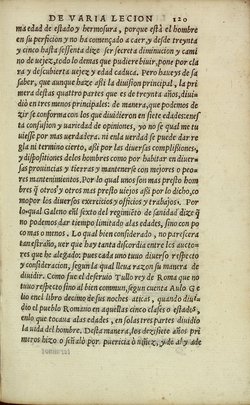 DE VARIA LECION 120
ma edad de estado y hermosura, porque està el hombre
en su perficion y no ha començado a caer, y desde treynta
y cinco hasta sessenta dize ser secreta diminucion y cami
no de vejez, todo lo demas que pudiere biuir, pone por cla
ra y descubierta vejez y edad caduca. Pero haueys de sa-
ber, que aunque haze assi la diuision principal, la pri
mera destas quatro partes que es de treynta años, diuide
en tres menos principales: de manera, que podemos de
zir se conforma con los que diuidieron en siete edades: en es
ta confusion y variedad de opiniones, yo no se qual me tu
uiesse por mas verdadera: ni en la verdad se puede dar re
gla ni termino cierto, assi por las diuersas complissiones,
y disposiciones delos hombres como por habitar en diuer
sas prouincias y tierras y mantenerse con mejores o peo
res mantenimientos. Por lo qual vnos son mas presto hom
bres q̃ otros y otros mas presto viejos assi por lo dicho, co
mo por los diuersos exercicios y officios y trabajos. Por
lo qual Galeno enl sexto del regimiẽto de sanidad dize q̃
no podemos dar tiempo limitado alas edades, sino con po
co mas o menos. Lo qual bien considerado, no parescera
tan estraño, ver que hay tanta discordia entre los aucto-
res que he alegado: pues cada vno tuuo diuerso respecto
y consideracion, segun la qual lleua razon su manera de
diuidir. Como fue el de seruio Tullo rey de Roma que no
tuuo respecto sino al bien commun, segun cuenta Aulo Ge
lio enel libro decimo de sus noches aticas, quando diui-
dio el pueblo Romano en aquellas cinco clases o estados,
enlo que tocaua alas edades, en solas tres partes diuidio
la vida del hombre. Desta manera, los dezissiete años pri
meros hizo o señalo por puericia ò niñez, y de alli ade